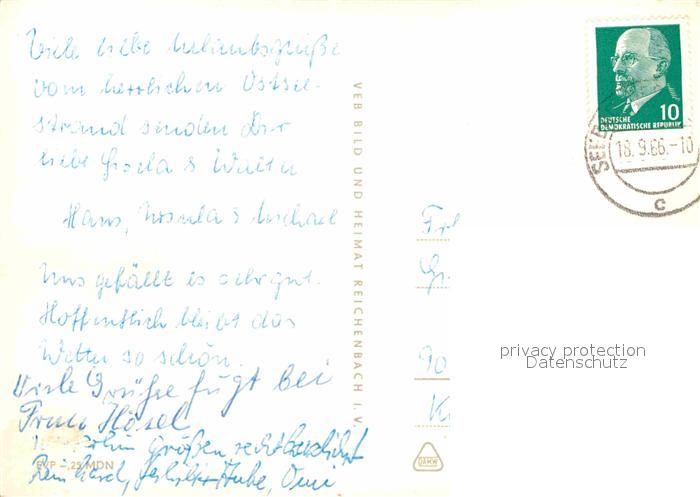 Viele liebe Urlaubsgrüße
vom herrlichen Ostsee-
strand senden Dir
liebe Gisela & Walter
Hans, Ursula & Michael
Uns gefällt es sehr gut.
Hoffentlich bleibt das
Wetter so schön.
Viele Grüße fügt bei
Frau Hösel
grüßen recht herzlichst
Omi
EVP -,25 MDN
VEB BILD UND HEIMAT REICHENBACH I. V.
10
DEUTSCHE
DEMOKRATISCHE REPUBLIK
SEEB
18.9.66.-10
C
90
privacy protection
Datenschutz